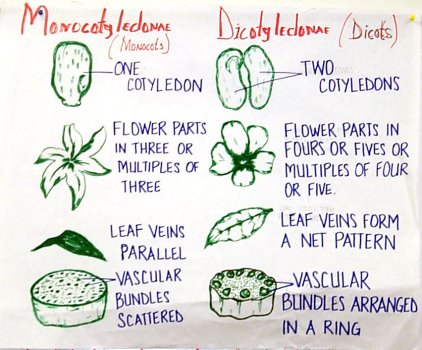 Monocotyledonae
(Monocots)
ONE
COTYLEDON
FLOWER PARTS
IN THREE OR
MULTIPLES OF
THREE
LEAF VEINS
PARALLEL
VASCULAR
BUNDLES
SCATTERED
Dicotyledonae (Dicots)
TWO
COTYLEDONS
FLOWER PARTS IN
FOURS OR FIVES OR
MULTIPLES OF FOUR
OR FIVE.
LEAF VEINS FORM
A NET PATTERN
VASCULAR
BUNDLES ARRANGED
IN A RING